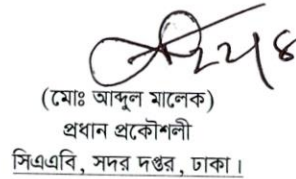 (মোঃ আব্দুল মালেক)
প্রধান প্রকৌশলী
সিএএবি, সদর দপ্তর, ঢাকা।